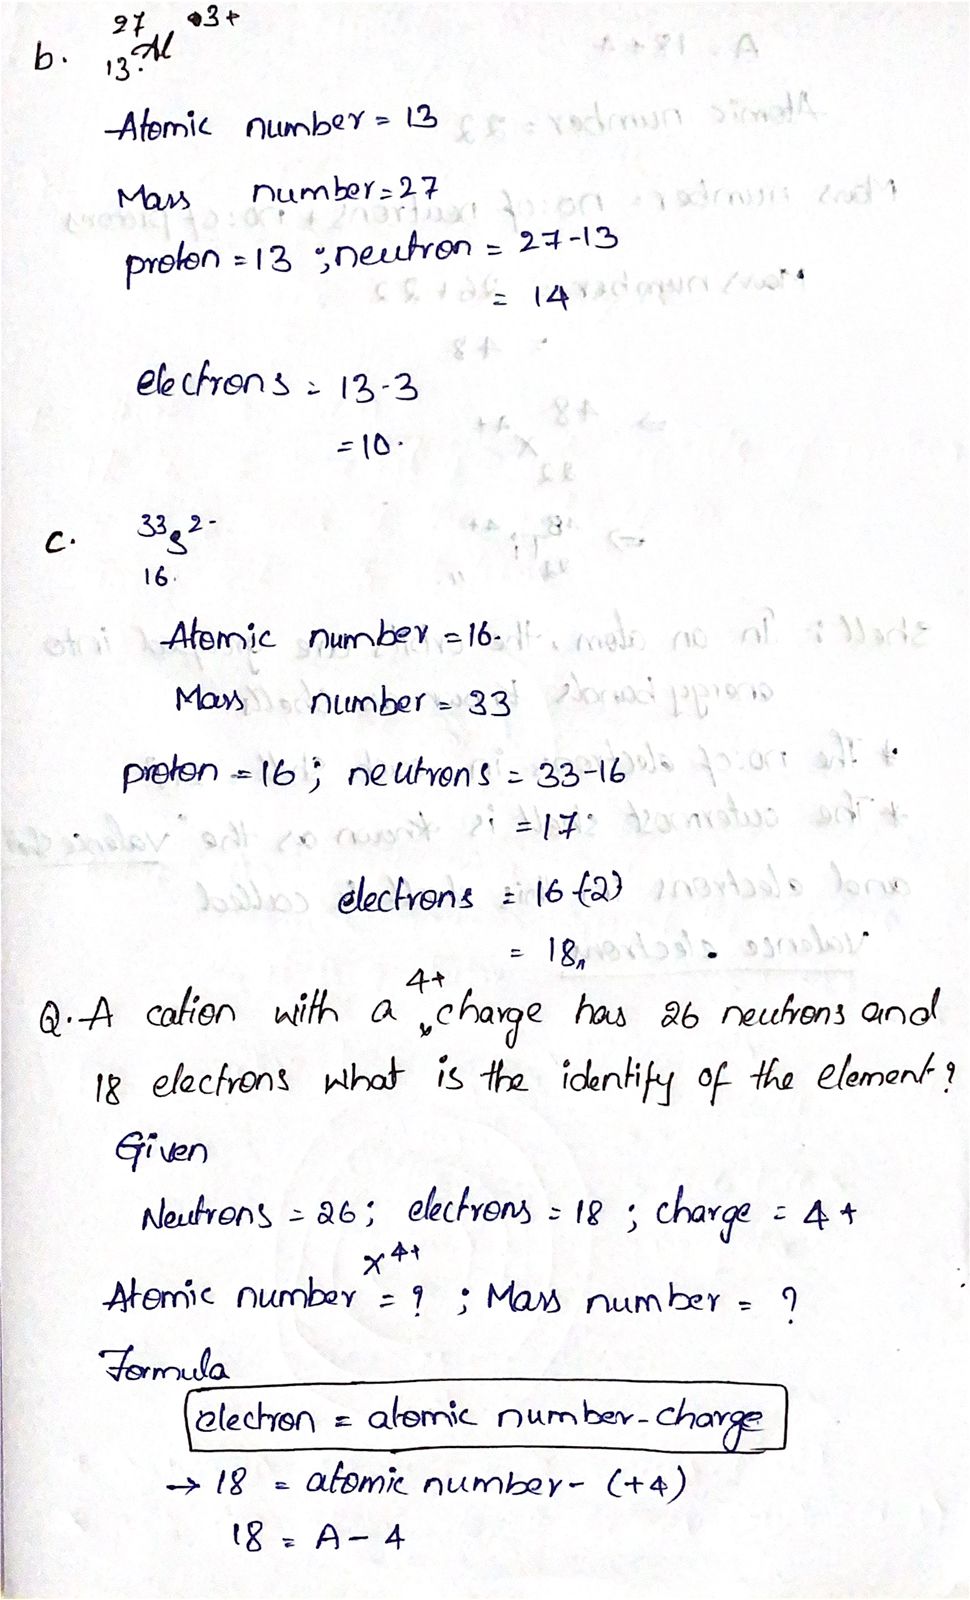 b. 27 13 Al 3+
Atomic number = 13
Mass number = 27
proton = 13 ; neutron = 27-13
= 14
electrons = 13-3
= 10.
c. 33 S 2-
16.
Atomic number = 16.
Mass number = 33
proton = 16 ; neutrons = 33-16
= 17
electrons = 16-(-2)
= 18
4+
Q. A cation with a charge has 26 neutrons and
18 electrons what is the identify of the element?
Given
Neutrons = 26; electrons = 18 ; charge = 4+
x 4+
Atomic number = ? ; Mass number = ?
Formula
electron = atomic number - charge
→ 18 = atomic number - (+4)
18 = A - 4